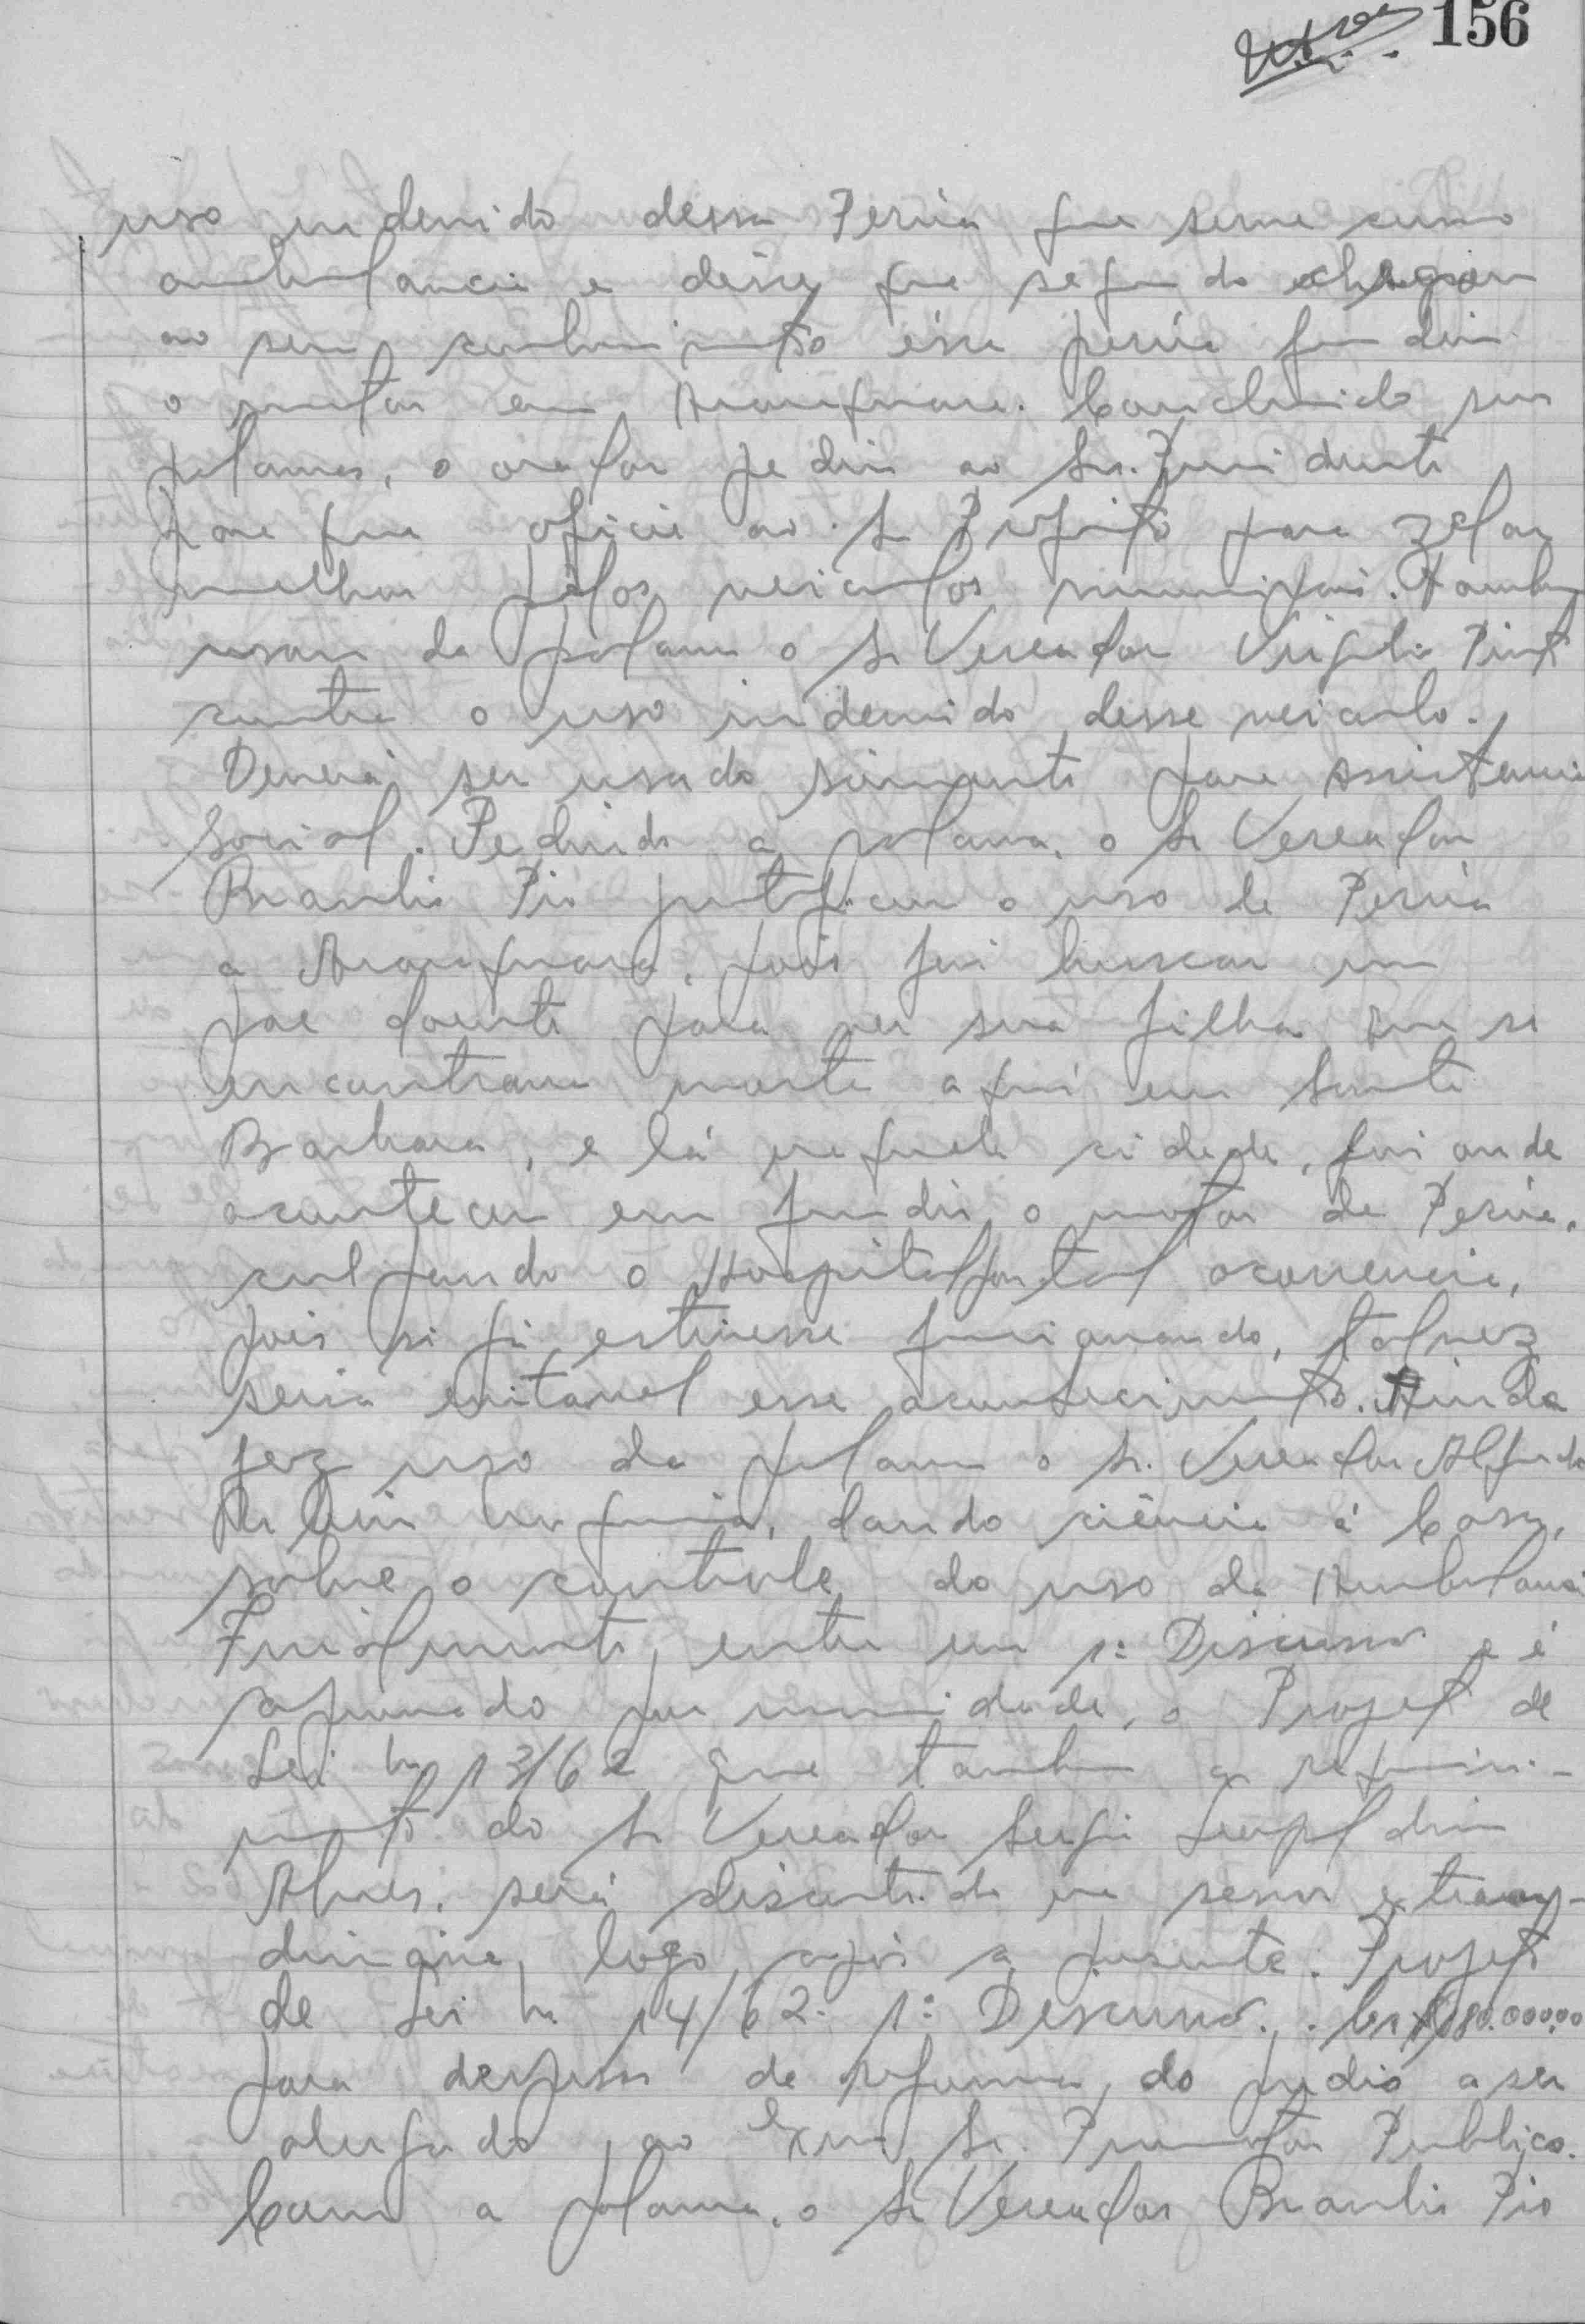 156
uso indevido dessa Perúa que serve como
ambulancia e disse que segundo chegou
ao seu conhecimento essa perúa fundiu
o motor em Araraquara. Concluindo sua
palavra, o orador pediu ao Sr. Presidente
para que oficie ao Sr Prefeito para zelar
melhor pelos veiculos municipais. Tambem
usou da palavra o Sr Vereador Virgilio Pinto
contra o uso indevido desse veiculo.
Deverá ser usado sómente para Assistencia
Social. Pedindo a palavra, o Sr Vereador
Braulio Pio justificou o uso da Perúa
a Araraquara, pois foi buscar um
pae doente para ver sua filha que se
encontrava morta aqui em Santa
Barbara, e lá naquela cidade, foi onde
aconteceu em fundir o motor da Perúa,
culpando o Hospital por tal ocorrencia,
pois si já estivesse funcionando, talvez
seria evitavel esse acontecimento. Ainda
fez uso da palavra o Sr. Vereador Alfredo
dando ciência á Casa,
sobre o controle do uso da Ambulancia
Finalmente, entra em 1ª Discussão e é
aprovado por unanimidade, o Projeto de
Lei nº 13/62 que tambem a requeri-
mento do Sr Vereador Sergio Leopoldino
Alves, será discutido na sessão extraor-
dinaria, logo após a presente. Projeto
de Lei nº 14/62 1ª Discussão. Cr$ 180.000,00
para despesas de reforma, do predio a ser
alugado ao Exmo Sr. Promotor Publico.
Com a palavra, o Sr Vereador Braulio Pio